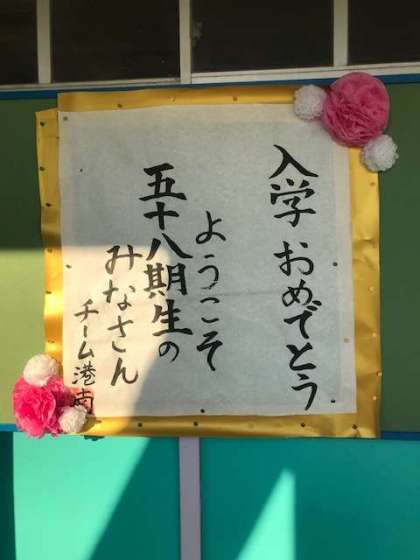 入学おめでとう
ようこそ
五十八期生の
みなさん
チーム港南